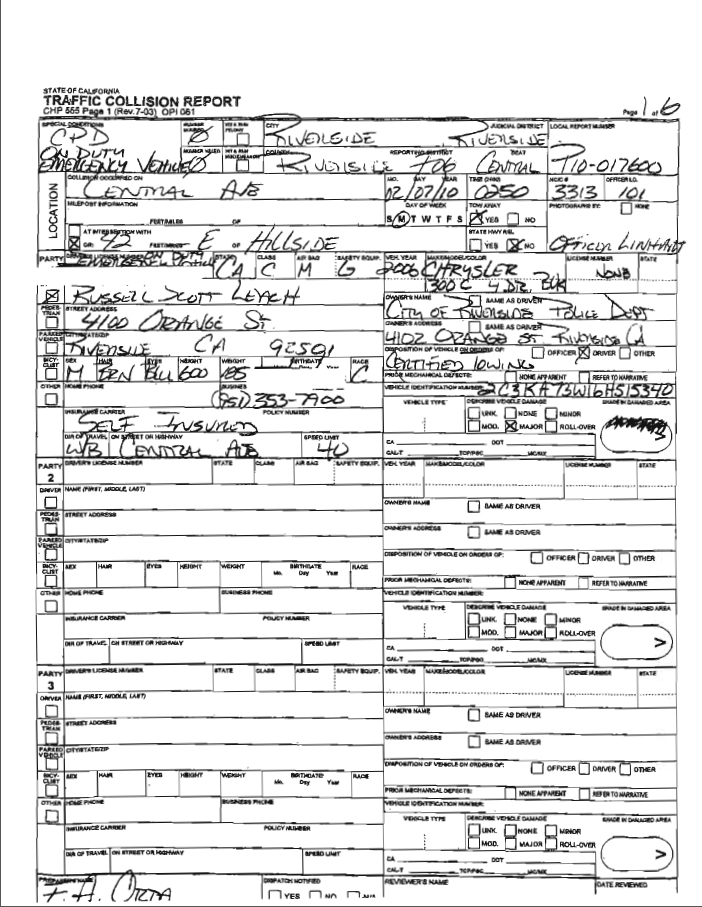 STATE OF CALIFORNIA
TRAFFIC COLLISION REPORT
CHP 555 Page 1 (Rev. 7-03) OPI 061
Page 1 of 6
SPECIAL CONDITIONS NUMBER INJURED HIT & RUN FELONY CITY JUDICIAL DISTRICT LOCAL REPORT NUMBER
CPD 0 RIVERSIDE RIVERSIDE
ON DUTY NUMBER KILLED HIT & RUN MISDEMEANOR COUNTY REPORTING DISTRICT BEAT
EMERGENCY VEHICLE 0 RIVERSIDE CENTRAL P10-017600
LOCATION
COLLISION OCCURRED ON MO. DAY YEAR TIME (2400) NCIC # OFFICER I.D.
CENTRAL AVE 02/07/10 0250 3313 101
MILEPOST INFORMATION DAY OF WEEK TOW AWAY PHOTOGRAPHS BY: NONE
FEET/MILES OF S M T W T F S YES NO
AT INTERSECTION WITH STATE HWY REL
OR: 42 FEET/MILES E OF HILLSIDE YES NO OFFICER LINHARDT
PARTY DRIVER'S LICENSE NUMBER STATE CLASS AIR BAG SAFETY EQUIP. VEH. YEAR MAKE/MODEL/COLOR LICENSE NUMBER STATE
EMERGENCY ON DUTY CA C M G 2006 CHRYSLER NONE
300 C 4 DR. BLK
RUSSELL SCOTT LEACH OWNER'S NAME SAME AS DRIVER
PEDESTRIAN STREET ADDRESS CITY OF RIVERSIDE POLICE DEPT
4100 ORANGE ST OWNER'S ADDRESS SAME AS DRIVER
PARKED VEHICLE CITY/STATE/ZIP 4102 ORANGE ST RIVERSIDE CA
RIVERSIDE CA 92501 DISPOSITION OF VEHICLE ON ORDERS OF: OFFICER DRIVER OTHER
BICYCLIST SEX HAIR EYES HEIGHT WEIGHT RACE CERTIFIED TOWING
M BRN BLU 600 185 C PRIOR MECHANICAL DEFECTS: NONE APPARENT REFER TO NARRATIVE
OTHER HOME PHONE BUSINESS VEHICLE IDENTIFICATION NUMBER: 2C3KA73W16H515340
(951) 353-7900 VEHICLE TYPE DESCRIBE VEHICLE DAMAGE SHADE IN DAMAGED AREA
INSURANCE CARRIER POLICY NUMBER UNK. NONE MINOR
SELF INSURED MOD. MAJOR ROLL-OVER
DIR OF TRAVEL ON STREET OR HIGHWAY SPEED LIMIT CA DOT
W/B CENTRAL AVE 40 CAL-T TCP/PSC MC/MX
PARTY 2 DRIVER'S LICENSE NUMBER STATE CLASS AIR BAG SAFETY EQUIP. VEH. YEAR MAKE/MODEL/COLOR LICENSE NUMBER STATE
DRIVER NAME (FIRST, MIDDLE, LAST) OWNER'S NAME SAME AS DRIVER
PEDESTRIAN STREET ADDRESS OWNER'S ADDRESS SAME AS DRIVER
PARKED VEHICLE CITY/STATE/ZIP DISPOSITION OF VEHICLE ON ORDERS OF: OFFICER DRIVER OTHER
BICYCLIST SEX HAIR EYES HEIGHT WEIGHT BIRTHDATE Mo. Day Year RACE PRIOR MECHANICAL DEFECTS: NONE APPARENT REFER TO NARRATIVE
OTHER HOME PHONE BUSINESS PHONE VEHICLE IDENTIFICATION NUMBER:
VEHICLE TYPE DESCRIBE VEHICLE DAMAGE SHADE IN DAMAGED AREA
INSURANCE CARRIER POLICY NUMBER UNK. NONE MINOR
MOD. MAJOR ROLL-OVER
DIR OF TRAVEL ON STREET OR HIGHWAY SPEED LIMIT CA DOT
CAL-T TCP/PSC MC/MX
PARTY 3 DRIVER'S LICENSE NUMBER STATE CLASS AIR BAG SAFETY EQUIP. VEH. YEAR MAKE/MODEL/COLOR LICENSE NUMBER STATE
DRIVER NAME (FIRST, MIDDLE, LAST) OWNER'S NAME SAME AS DRIVER
PEDESTRIAN STREET ADDRESS OWNER'S ADDRESS SAME AS DRIVER
PARKED VEHICLE CITY/STATE/ZIP DISPOSITION OF VEHICLE ON ORDERS OF: OFFICER DRIVER OTHER
BICYCLIST SEX HAIR EYES HEIGHT WEIGHT BIRTHDATE Mo. Day Year RACE PRIOR MECHANICAL DEFECTS: NONE APPARENT REFER TO NARRATIVE
OTHER HOME PHONE BUSINESS PHONE VEHICLE IDENTIFICATION NUMBER:
VEHICLE TYPE DESCRIBE VEHICLE DAMAGE SHADE IN DAMAGED AREA
INSURANCE CARRIER POLICY NUMBER UNK. NONE MINOR
MOD. MAJOR ROLL-OVER
DIR OF TRAVEL ON STREET OR HIGHWAY SPEED LIMIT CA DOT
CAL-T TCP/PSC MC/MX
PREPARER'S NAME DISPATCH NOTIFIED REVIEWER'S NAME DATE REVIEWED
YES NO